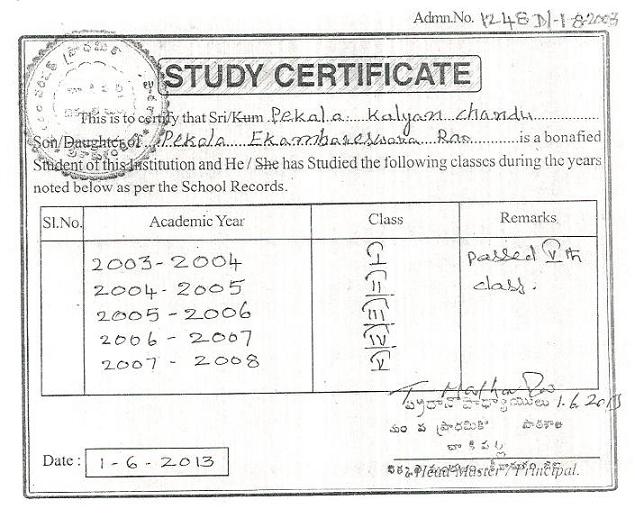 Admn.No. 1248 D/-1-8-2003
STUDY CERTIFICATE
This is to certify that Sri/Kum Pekala Kalyan Chandu
Son/Daughter of Pekala Ekambareswara Rao is a bonafied
Student of this Institution and He / She has Studied the following classes during the years
noted below as per the School Records.
Sl.No. Academic Year Class Remarks
2003-2004 I passed Vth
2004-2005 II class.
2005-2006 III
2006-2007 IV
2007-2008 V
1.6.2013
ప్రధానోపాధ్యాయులు
మం ప ప్రాథమిక పాఠశాల
Date : 1-6-2013
Head Master / Principal.